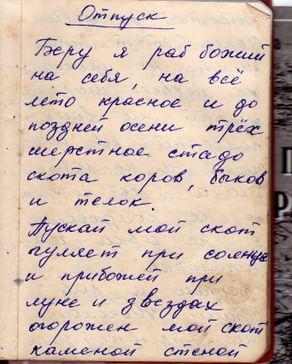 Отпуск
Беру я раб божий
на себя, на всё
лето красное и до
поздней осени трёх
шерстное стадо
скота коров, быков
и телок.
Пускай мой скот
гуляет при солнце
и прибожей при
луне и звездах
огорожен мой скот
каменой стеной